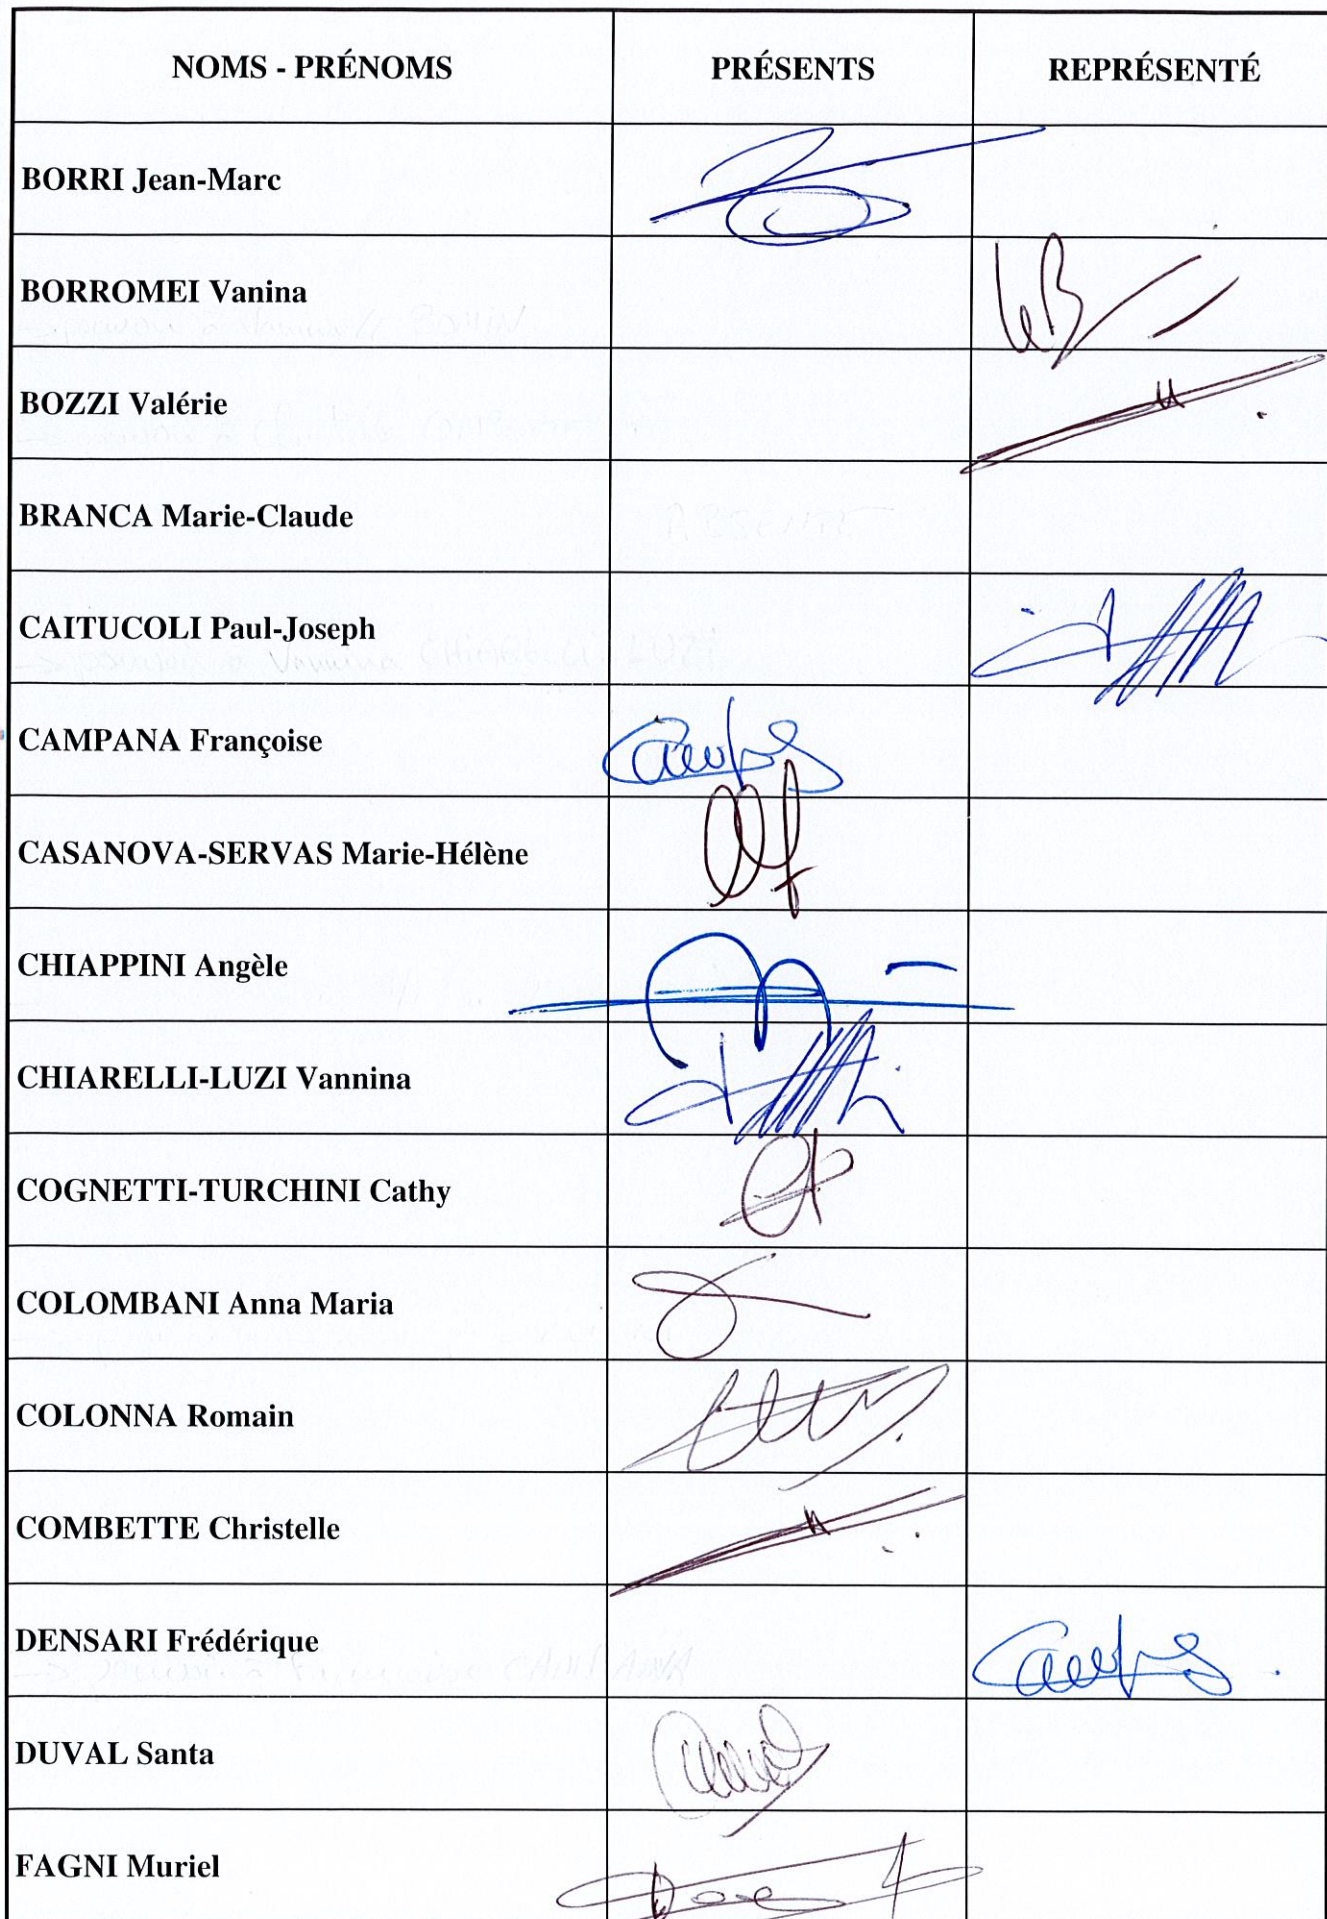 NOMS - PRÉNOMS PRÉSENTS REPRÉSENTÉ
BORRI Jean-Marc
BORROMEI Vanina
BOZZI Valérie
BRANCA Marie-Claude ABSENTE
CAITUCOLI Paul-Joseph
-> pouvoir à Vannina CHIARELLI-LUZI
CAMPANA Françoise
CASANOVA-SERVAS Marie-Hélène
CHIAPPINI Angèle
CHIARELLI-LUZI Vannina
COGNETTI-TURCHINI Cathy
COLOMBANI Anna Maria
COLONNA Romain
COMBETTE Christelle
DENSARI Frédérique
-> pouvoir à Françoise CAMPANA
DUVAL Santa
FAGNI Muriel